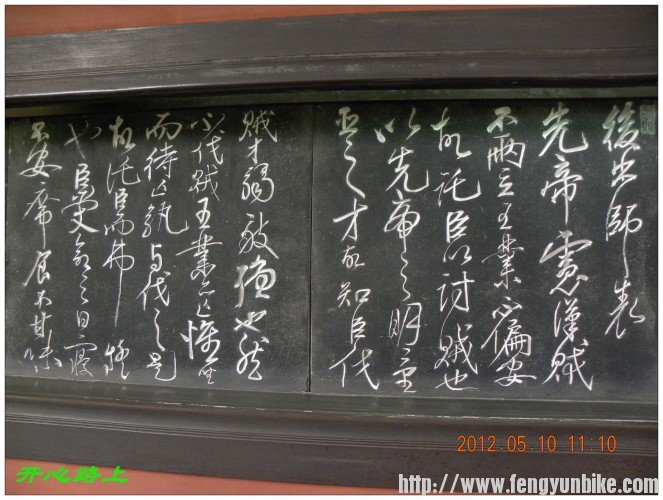 後出師表
先帝慮漢賊
不兩立王業不偏安
故託臣以討賊也
以先帝之明量
臣之才故知臣伐
賊才弱敵強也然
不伐賊王業亦亡惟坐
而待亡孰與伐之是
故託臣而弗疑
也臣受命之日寢
不安席食不甘味
2012.05.10 11:10
开心路上
http://www.fengyunbike.com